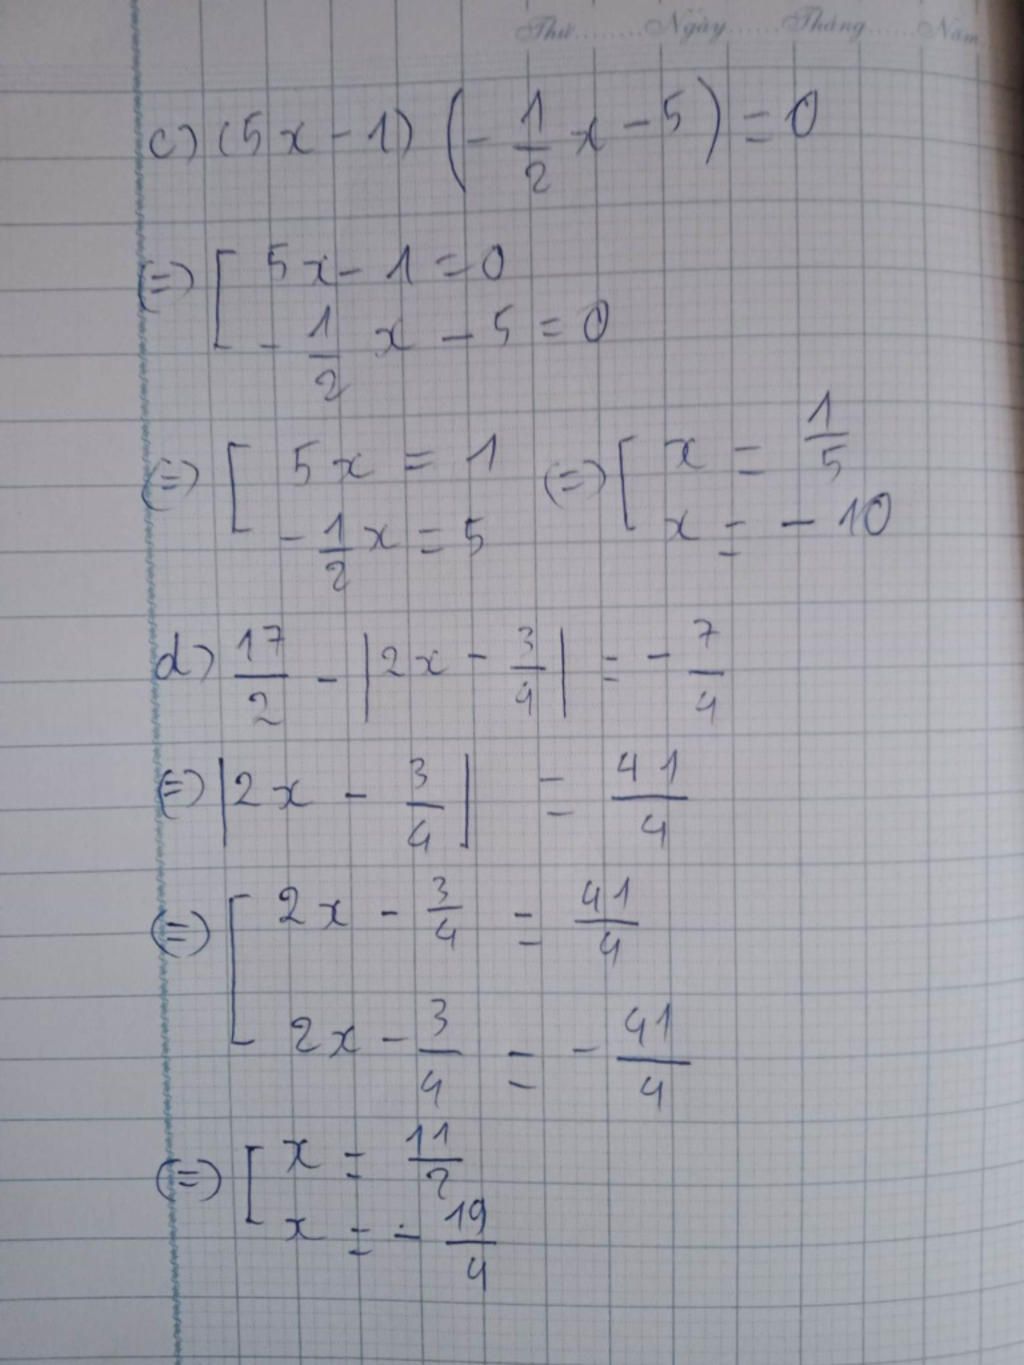 Thứ........Ngày......Tháng......Năm
c) (5x - 1) (- 1/2 x - 5) = 0
(=) [ 5x - 1 = 0
- 1/2 x - 5 = 0
(=) [ 5x = 1 (=) [ x = 1/5
- 1/2 x = 5 x = - 10
d) 17/2 - |2x - 3/4| = - 7/4
(=) |2x - 3/4| = 41/4
(=) [ 2x - 3/4 = 41/4
2x - 3/4 = - 41/4
(=) [ x = 11/2
x = - 19/4